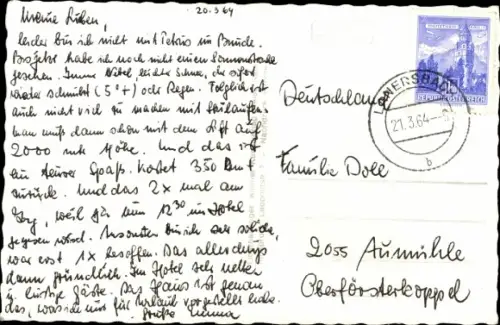 20.3.64
Meine Lieben,
leider bin ich nicht mit Petrus im Bunde.
Bis jetzt habe ich noch nicht einen Sonnenstrahl
gesehen. Immer Nebel, leichter Schnee, der sofort
wieder schmilzt (5°+) oder Regen. Folglich ist
auch nicht viel zu machen mit Skilaufen.
Man muß dann schon mit dem Lift auf
2000 mtr Höhe. Und das ist
ein teurer Spaß. Kostet 350
zurück. Und das 2x mal am
Tag, weil hier um 12 30 im Hotel
gegessen wird. Ansonsten bin ich sehr solide,
war erst 1x besoffen. Das allerdings
dann gründlich. Im Hotel sehr nette
u. lustige Gäste. Das Haus ist genau
das, was ich mir für Urlaub vorgestellt habe.
Grüße
REPUBLIK ÖSTERREICH
LANERSBACH
21.3.64
b
Deutschland
Familie Doll
2055 Aumühle
Oberförsterkoppel